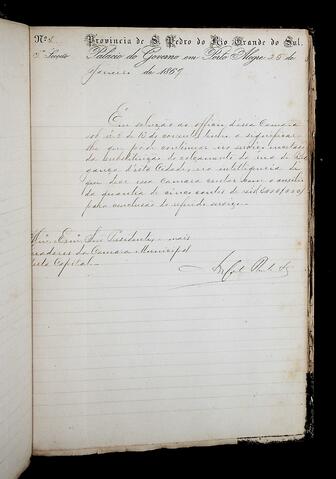 Nº 8. Provincia de S. Pedro do Rio Grande do Sul.
Palacio do Governo em Porto Alegre 25 de
Janeiro de 1867.
Em solução ao officio d'essa Camara
sob nº 2 de 13 do corrente, tenho a significar
lhe que pode continuar no
da substituição do calçamento da rua de
d'esta Cidade, na intelligencia de
que dessa Camara
da quantia de cinco contos de reis (5:000$000)
para conclusão do referido serviço.
Presidente, e mais
da Camara Municipal
Capital.